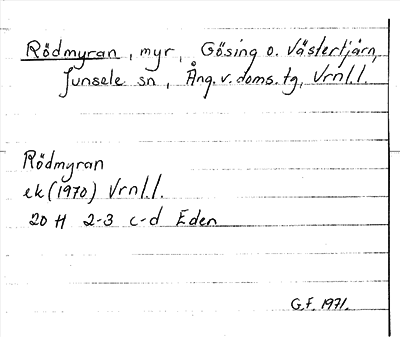 Rödmyran, myr, Gösing o. Västertjärn,
Junsele sn, Ång. v. doms. tg, Vrnl.l.
Rödmyran
ek (1970) Vrnl.l.
20 H 2-3 c-d Eden
G.F. 1971.